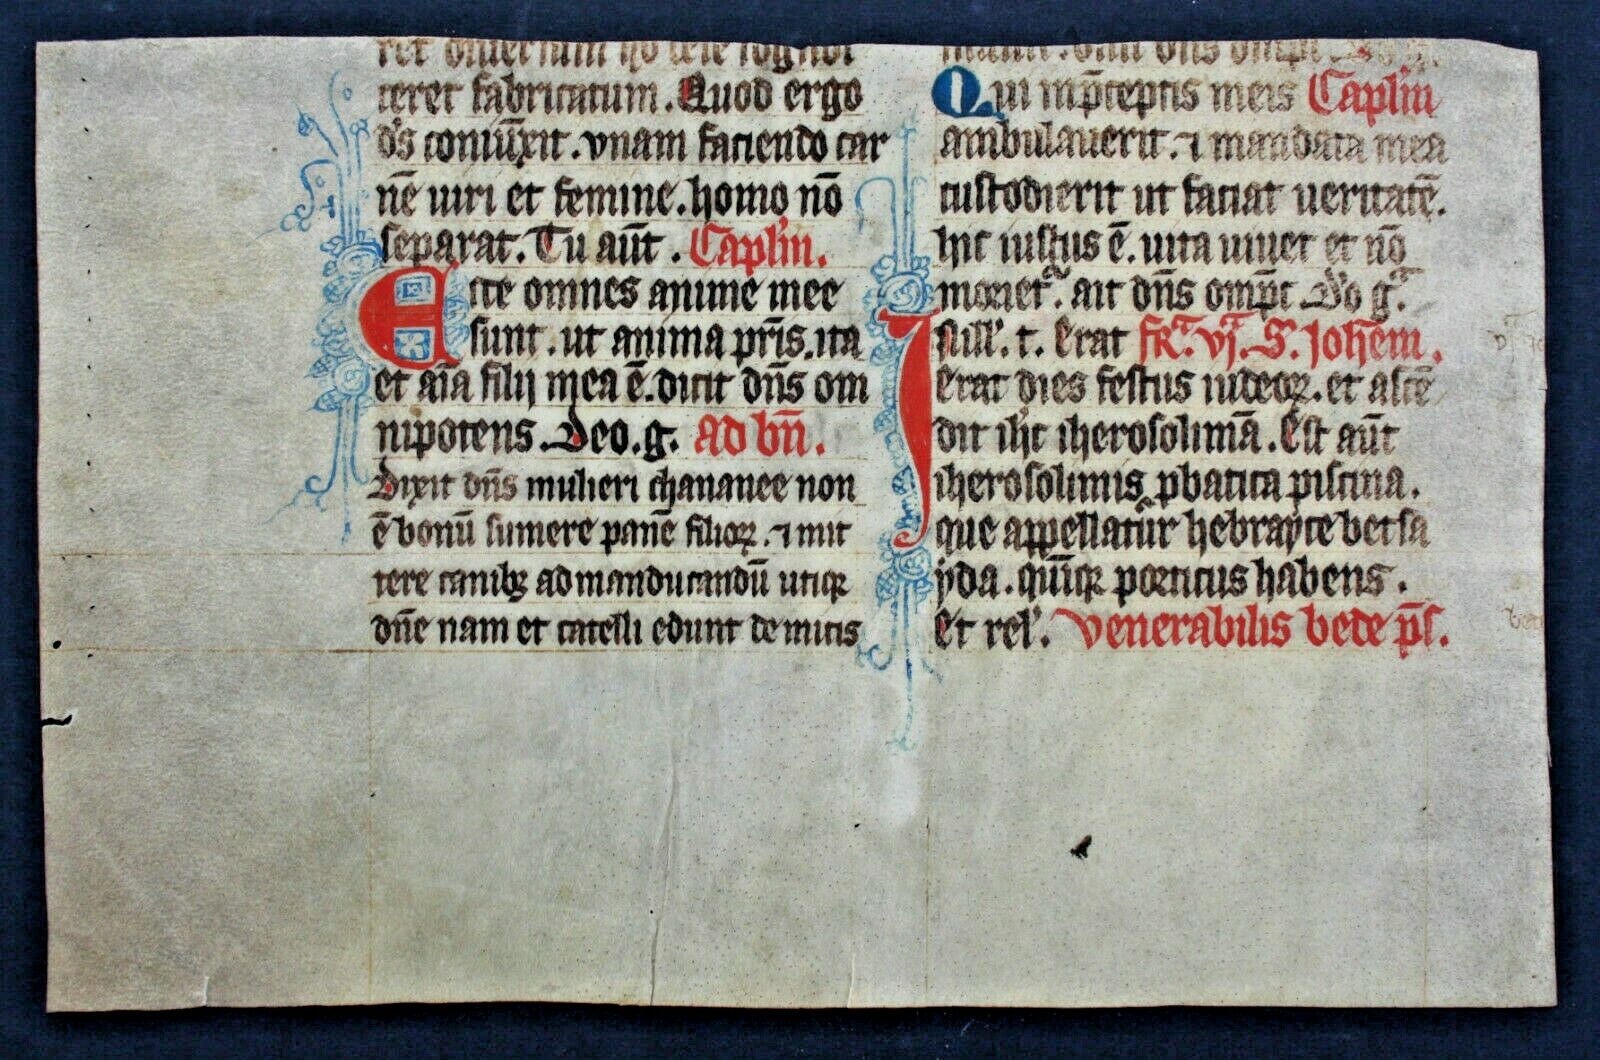 teret fabricatum. Quod ergo
ds coniūxit. vnam faciendo car
nē uiri et femine. homo nō
separat. Tu aūt. Caplm.
Ecce omnes anime mee
sunt. ut anima pr̄is. ita
et aīa filij mea ē. dicit dn̄s om
nipotens. Deo. g. ad bn̄.
Dixit dn̄s mulieri chananee non
ē bonū sumere panē filioꝝ. ⁊ mit
tere canibꝫ ad manducandū utiqꝫ
dn̄e nam et catelli edunt de micis
Qui in p̄ceptis meis Caplm
ambulauerit. ⁊ mandata mea
custodierit ut faciat ueritatē.
hic iustus ē. uita uiuet et nō
moriet᷑. ait dn̄s omp̄t Do gᵃ.
t. Erat fr͛. vj. S. Johem.
Erat dies festus iudeoꝝ. et ascē
dit ih̄c iherosolimā. Est aūt
iherosolimis ꝓbatica piscina.
que appellatur hebrayce betsa
yda. quīqꝫ porticus habens.
Et rel'. Venerabilis bede p̄s.